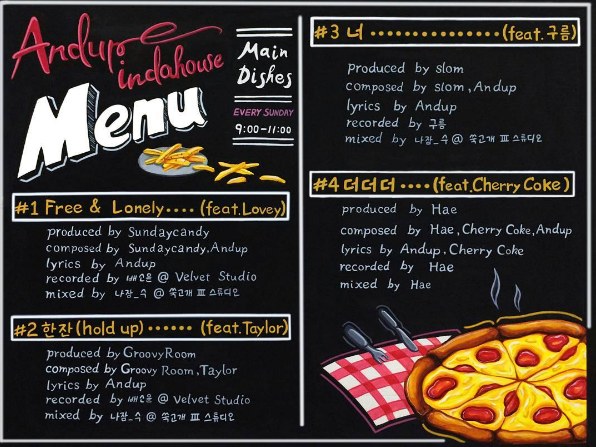 Andup
indahouse
Menu
Main
Dishes
EVERY SUNDAY
9:00-11:00
#1 Free & Lonely.... (feat.Lovey)
produced by Sundaycandy
composed by Sundaycandy,Andup
lyrics by Andup
recorded by 배은율 @ Velvet Studio
mixed by 나잠_수 @ 쑥고개 III 스튜디오
#2 한잔(hold up)...... (feat.Taylor)
produced by GroovyRoom
composed by Groovy Room,Taylor
lyrics by Andup
recorded by @ Velvet Studio
mixed by 나잠_수 @ 쑥고개 III 스튜디오
#3 너 ............... (feat.구름)
produced by slom
composed by slom,Andup
lyrics by Andup
recorded by 구름
mixed by 나잠_수 @ 쑥고개 III 스튜디오
#4 더더더 ....(feat.Cherry Coke)
produced by Hae
composed by Hae,Cherry Coke,Andup
lyrics by Andup,Cherry Coke
recorded by Hae
mixed by Hae